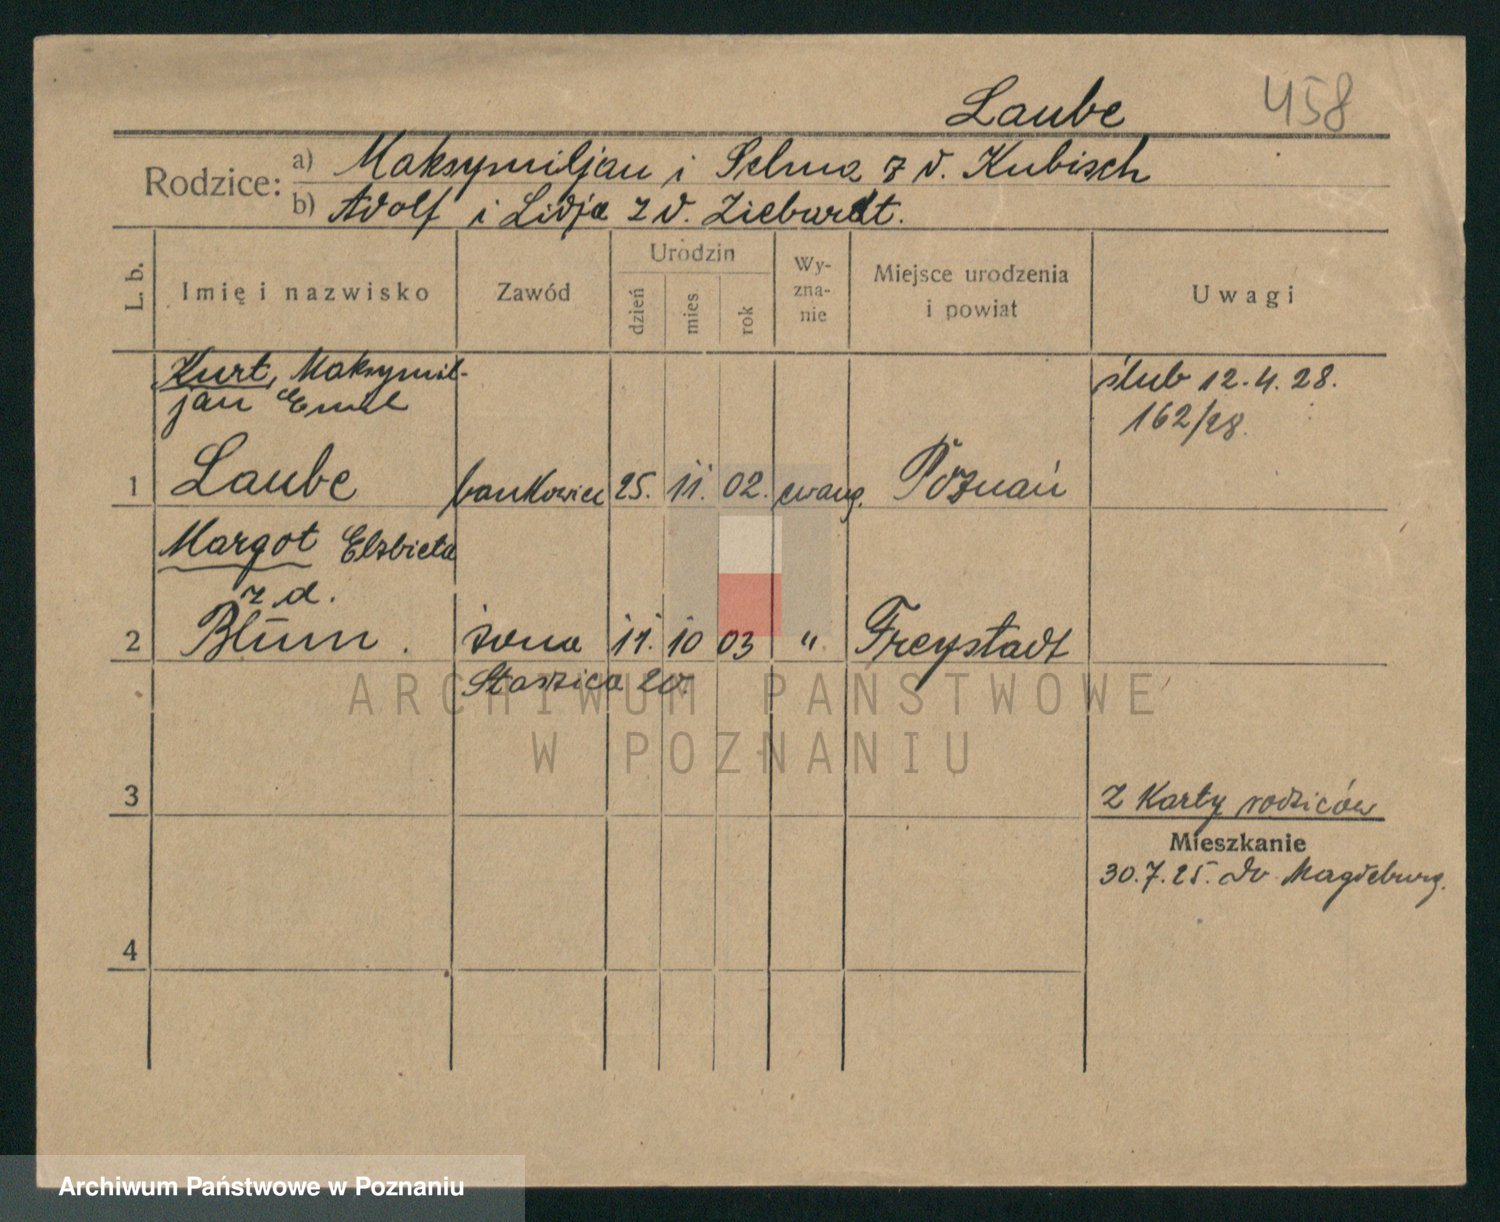 Laube 458
Rodzice: a) Maksymiljan i Selma z d. Kubisch
b) Adolf i Lidja z d. Ziebardt.
L. b. Imię i nazwisko Zawód Urodzin dzień mies rok Wy-zna-nie Miejsce urodzenia i powiat Uwagi
Kurt, Maksymil-
jan Emil
ślub 12.4.28.
162/28.
1 Laube bankowiec 25. 11. 02. ewang. Poznań
Margot Elzbieta
z d.
2 Blum. żona 11. 10 03 " Freystadt
Staszica 20.
ARCHIWUM PAŃSTWOWE
W POZNANIU
3
Z Karty rodziców
Mieszkanie
30.7.25. do Magdeburg.
4
Archiwum Państwowe w Poznaniu